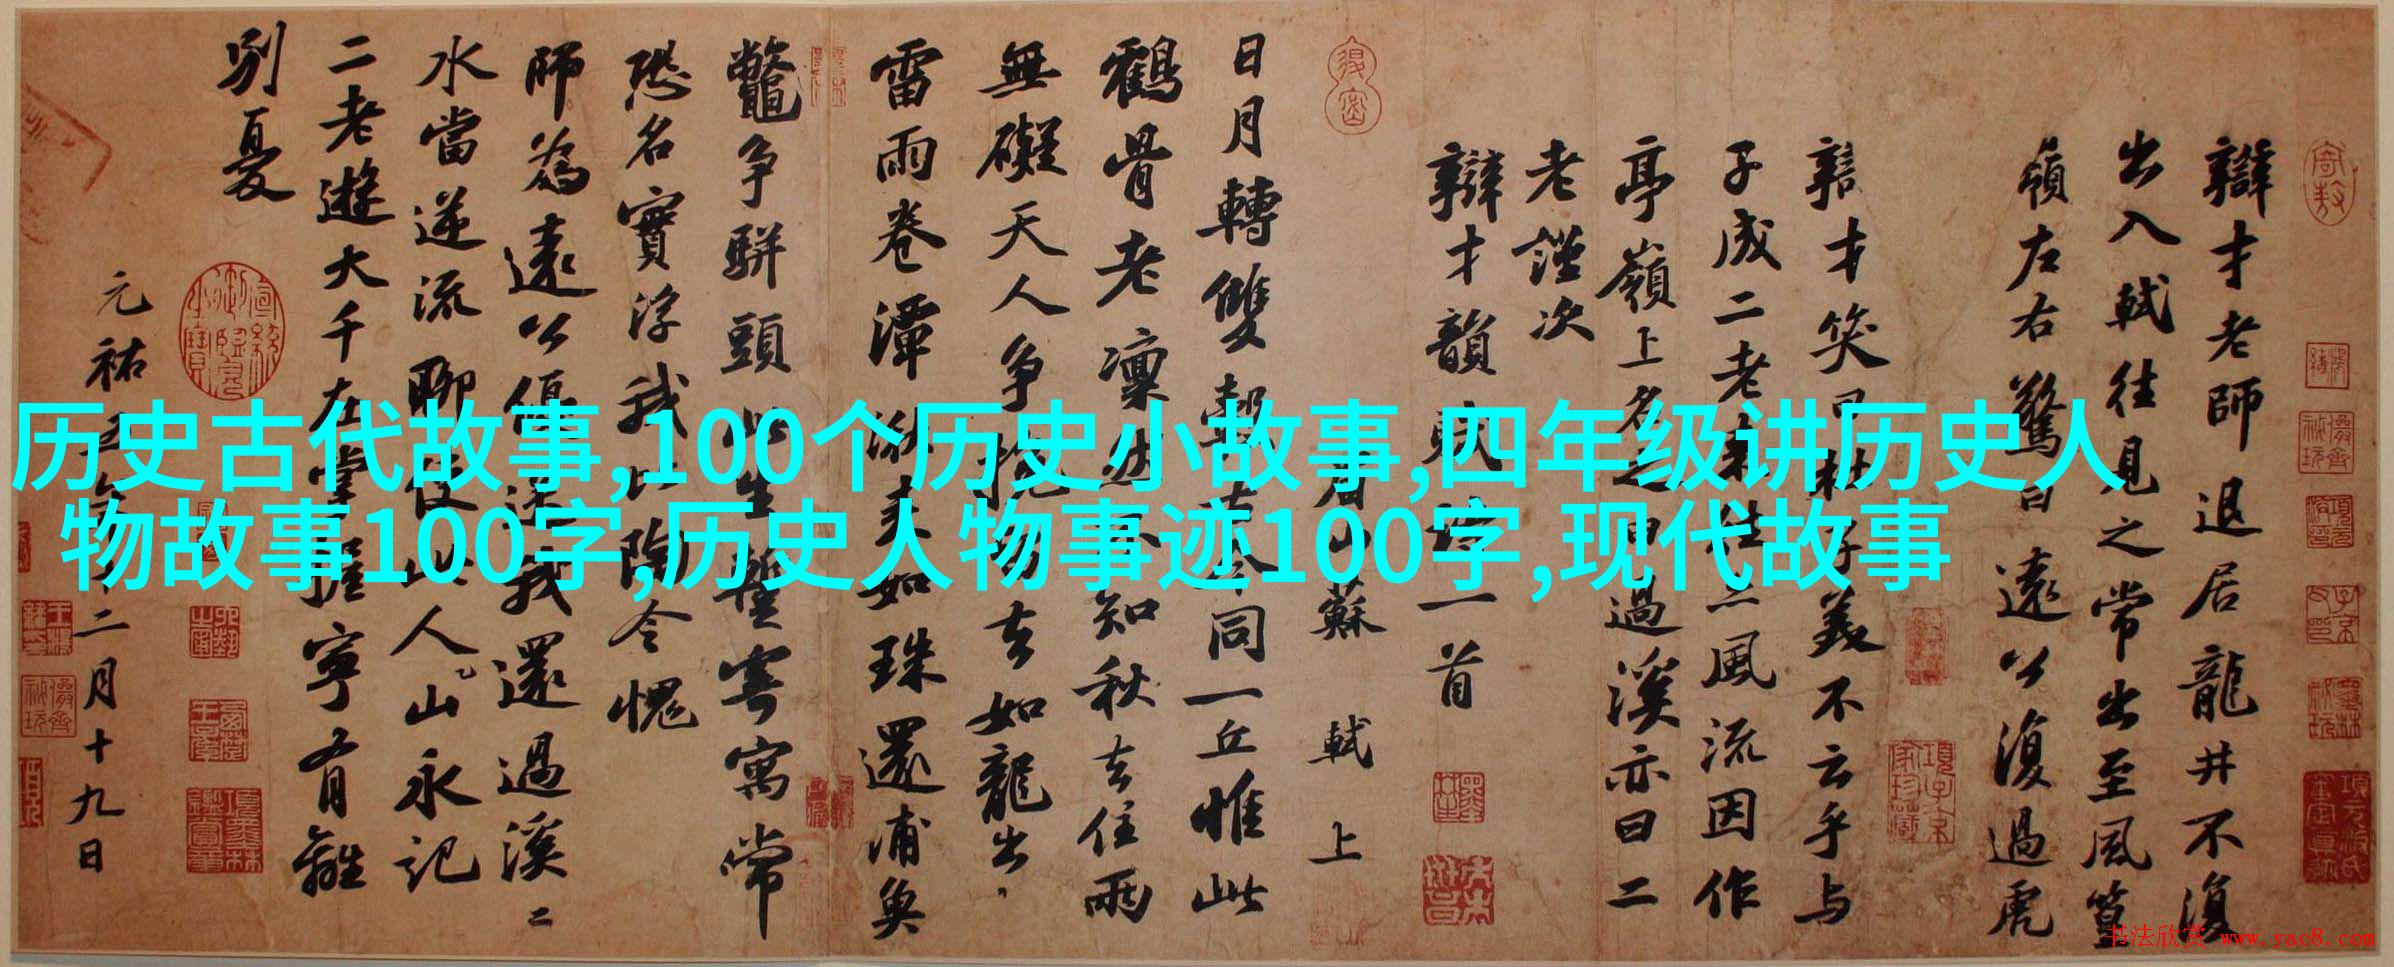 历史古代故事,100个历史小故事,四年级讲历史人
物故事100字,历史人物事迹100字,现代故事
辯才老師退居龍井不復
出入軾往見之常出至風篁
嶺左右驚曰遠公復過虎
辯才笑曰杜子美不云乎与
子成二老来往亦風流因作
亭嶺上名之曰過溪亦曰二
老謹次
辯才韻賦詩一首
眉山蘇軾上
日月轉雙轂古今同一丘惟此
鶴骨老凜然不知秋去住兩
無礙天人争挽去如龍出
雷雨卷潭湫来如珠還浦魚
鼈争駢頭此生暫寄寓常
恐名實浮我比陶令愧
師為遠公優送我還過溪二
水當逆流聊使此人山永記
二老遊大千在掌握寧有離
別憂
元祐五年十二月十九日
书法欣赏 www.yac8.com